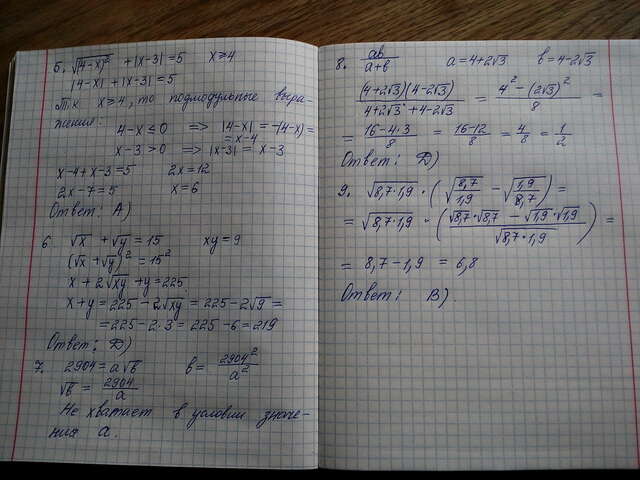 5. √(4-x)² + |x-3| = 5   x ≥ 4
|4-x| + |x-3| = 5
Т.к. x ≥ 4, то подмодульные выра-
жения:
4-x ≤ 0 => |4-x| = -(4-x) =
= x-4
x-3 > 0 => |x-3| = x-3
x-4+x-3 = 5   2x = 12
2x-7 = 5   x = 6
Ответ: А)
6 √x + √y = 15   xy = 9
(√x + √y)² = 15²
x + 2√xy + y = 225
x+y = 225 - 2√xy = 225 - 2√9 =
= 225 - 2·3 = 225 - 6 = 219
Ответ: Д)
7. 2904 = a√b   b = 2904²/a²
√b = 2904/a
Не хватает в условии значе-
ния a.
8. ab/(a+b)   a = 4+2√3   b = 4-2√3
(4+2√3)(4-2√3)/(4+2√3+4-2√3) = (4²-(2√3)²)/8 =
= (16-4·3)/8 = (16-12)/8 = 4/8 = 1/2
Ответ: Д)
9. √8,7·1,9 · (√(8,7/1,9) - √(1,9/8,7)) =
= √8,7·1,9 · ((√8,7·√8,7 - √1,9·√1,9)/√8,7·1,9) =
= 8,7-1,9 = 6,8
Ответ: В).